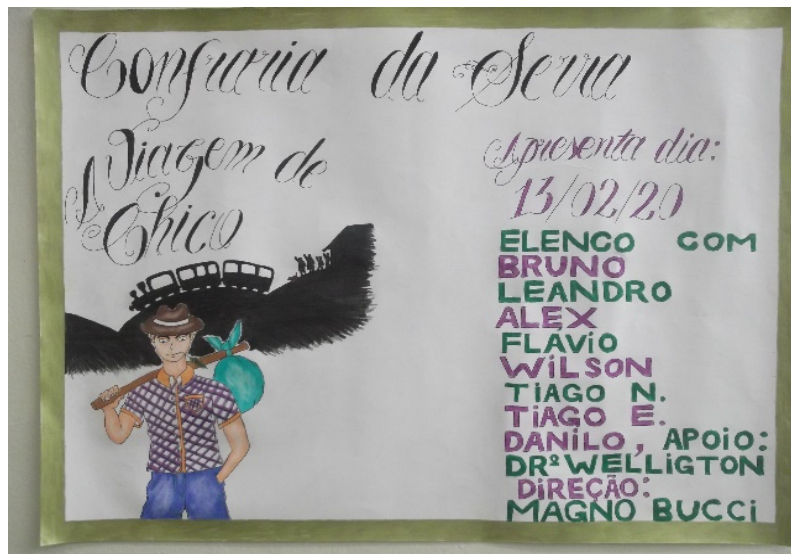 Confraria da Serra
A Viagem de
Chico
Apresenta dia:
13/02/20
ELENCO COM
BRUNO
LEANDRO
ALEX
FLÁVIO
WiLSON
TiAGO N.
TiAGO E.
DANiLO, APOiO:
DRº WELLiGTON
DiREÇÃO:
MAGNO BUCCi